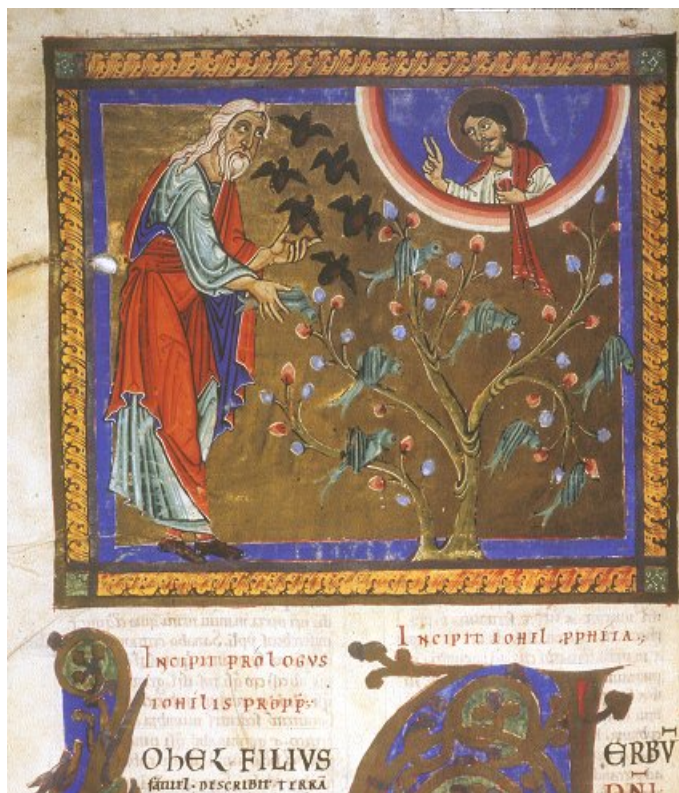 INCIPIT PROLOGVS
IOHILIS PROPP;
IOhEL FILIVS
fatuel · DESCRIBIT TERRĀ
INCIPIT IOHIL PPHETIA;
VERBV̄
DN̄I